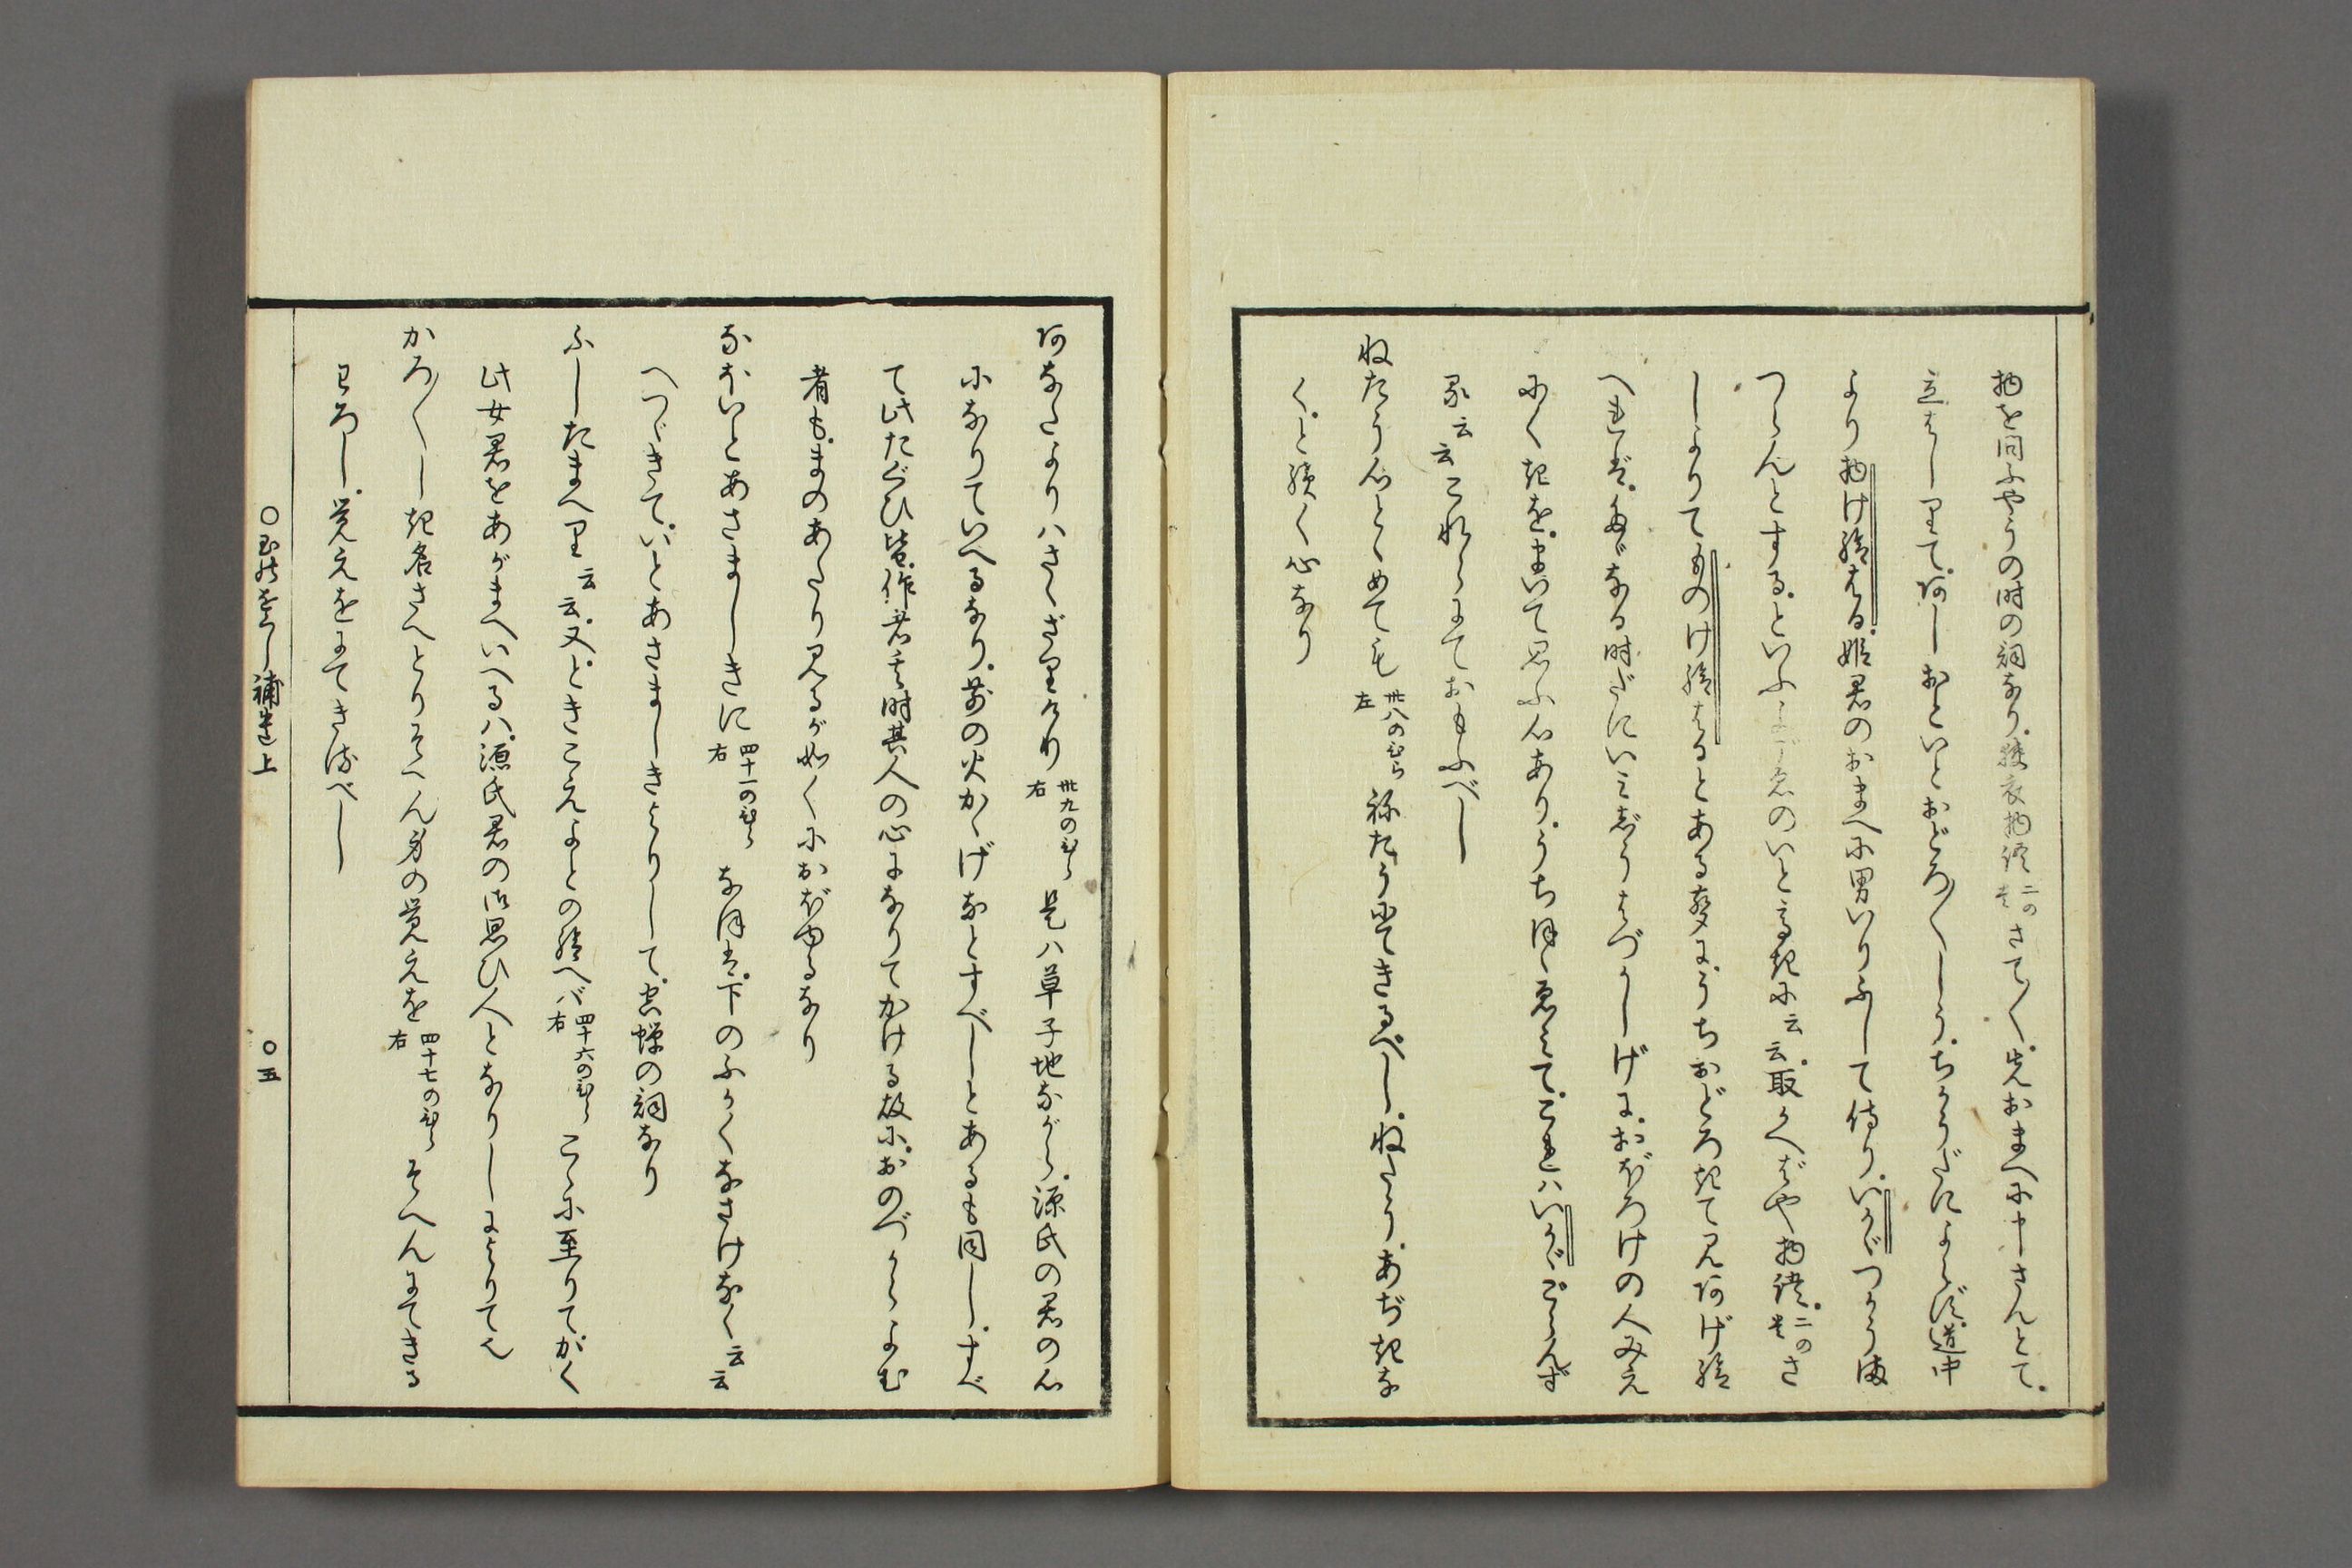 物を問ふやうの時の詞なり。狭衣物語二のさて〳〵。先おまへに申さんとて。
立はしりて。阿しおといとおどろ〳〵しう。ちかうだによらず。道中
より物け給はる。姫君のおまへに男いりふして侍り。いかゞつかう満
つらんとする。といふよゞゑのいと高きに云云。取かへばや物語。二のさ
しよりて。ものけ給はるとあるこゑに。うちおどろきて見阿げ給
へれば。なる時だにいみじうはづかしげに。おぼろけの人みえ
にくきを。まいて思ふ心あり。うちほゝゑみて。これはいかゞこゝらんず
る云云これらにておもふべし
ねたう心とゝめても 卅八のひら左 祢たうにてきるべし。ねたう。あぢきな
く。と続く心なり
阿なたよりはさゝざりけり 卅九のひら右 是ハ草子地ながら。源氏の君の心
になりていへるなり。前の火かゝげなとすべしとあるも同し。すべ
て此たぐひ皆。作者其時其人の心になりてかける故に。おのづからよむ
者も。まのあたり見るが如くにおぼゆるなり
なほいとあさましきに 四十一のひら右 なほは。下のふかくなさけなく云云
へつゞきて。いとあさましきよりして。空蝉の詞なり
ふしたまへり云云。又。ときこえよとの給へバ 四十六のひら右 こゝに至りて。かく
此女君をあがまへいへるハ。源氏君の御思ひ人となりしによりて也
かろ〴〵しき名さへとりそへん身の覚えを 四十七のひら右 そへんにてきる
もわろし。覚えをにてきるべし
〇玉の小くし補遺上 〇五